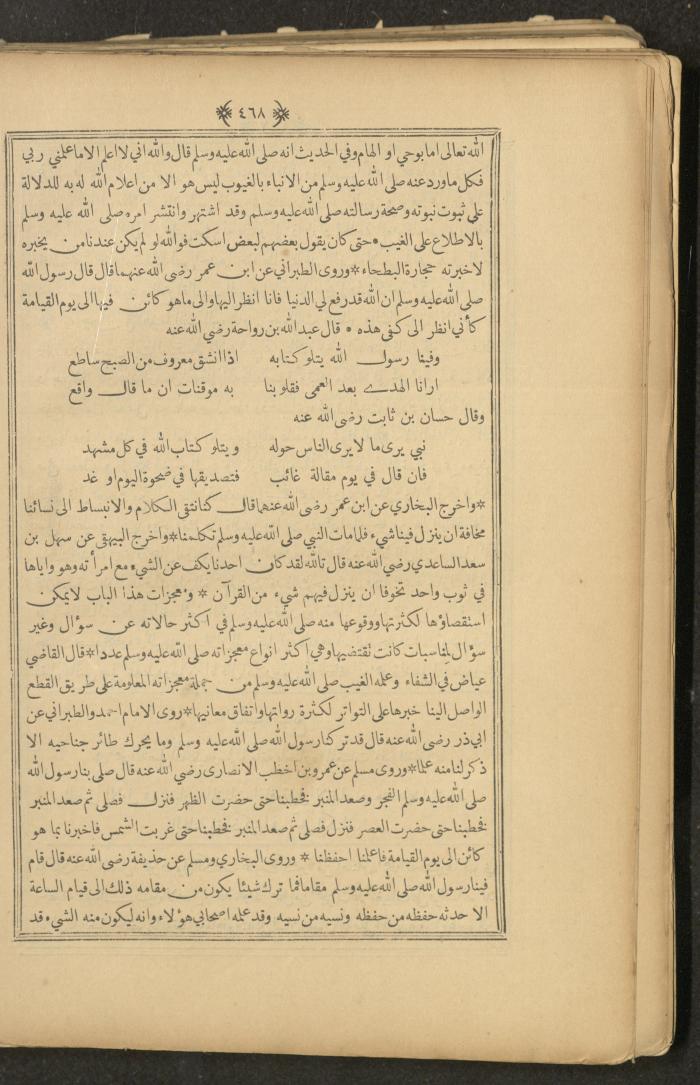 ٤٦٨
الله تعالى اما بوحي او الهام وفي الحديث انه صلى الله عليه وسلم قال والله اني لا اعلم الا ما علمني ربي
فكل ما ورد عنه صلى الله عليه وسلم من الانباء بالغيوب ليس هو الا من اعلام الله له به للدلالة
على ثبوت نبوته وصحة رسالته صلى الله عليه وسلم وقد اشتهر وانتشر امره صلى الله عليه وسلم
بالاطلاع على الغيب * حتى كان يقول بعضهم لبعض اسكت فوالله لو لم يكن عندنا من يخبره
لاخبرته حجارة البطحاء * وروى الطبراني عن ابن عمر رضى الله عنهما قال قال رسول الله
صلى الله عليه وسلم ان الله قد رفع لي الدنيا فانا انظر اليها والى ما هو كائن فيها الى يوم القيامة
كأني انظر الى كفى هذه * قال عبد الله بن رواحة رضي الله عنه
وفينا رسول الله يتلو كتابه اذا انشق معروف من الصبح ساطع
ارانا الهدى بعد العمى فقلوبنا به موقنات ان ما قال واقع
وقال حسان بن ثابت رضى الله عنه
نبي يرى ما لا يرى الناس حوله ويتلو كتاب الله في كل مشهد
فان قال في يوم مقالة غائب فتصديقها في ضحوة اليوم او غد
* واخرج البخاري عن ابن عمر رضى الله عنهما قال كنا نتقي الكلام والانبساط الى نسائنا
مخافة ان ينزل فينا شيء فلما مات النبي صلى الله عليه وسلم تكلمنا * واخرج البيهقي عن سهل بن
سعد الساعدي رضي الله عنه قال تالله لقد كان احدنا يكف عن الشيء مع امرأته وهو واياها
في ثوب واحد تخوفا ان ينزل فيهم شيء من القرآن * ومعجزات هذا الباب لا يمكن
استقصاؤها لكثرتها ووقوعها منه صلى الله عليه وسلم في اكثر حالاته عن سؤال وغير
سؤال لمناسبات كانت تقتضيها وهي اكثر انواع معجزاته صلى الله عليه وسلم عددا * قال القاضي
عياض في الشفاء وعلمه الغيب صلى الله عليه وسلم من جملة معجزاته المعلومة على طريق القطع
الواصل الينا خبرها على التواتر لكثرة رواتها واتفاق معانيها * روى الامام احمد والطبراني عن
ابي ذر رضى الله عنه قال قد تركنا رسول الله صلى الله عليه وسلم وما يحرك طائر جناحيه الا
ذكر لنا منه علما * وروى مسلم عن عمرو بن اخطب الانصارى رضي الله عنه قال صلى بنا رسول الله
صلى الله عليه وسلم الفجر وصعد المنبر فخطبنا حتى حضرت الظهر فنزل فصلى ثم صعد المنبر
فخطبنا حتى حضرت العصر فنزل فصلى ثم صعد المنبر فخطبنا حتى غربت الشمس فاخبرنا بما هو
كائن الى يوم القيامة فاعلمنا احفظنا * وروى البخاري ومسلم عن حذيفة رضى الله عنه قال قام
فينا رسول الله صلى الله عليه وسلم مقاما فما ترك شيئا يكون من مقامه ذلك الى قيام الساعة
الا حدثه حفظه من حفظه ونسيه من نسيه وقد علمه اصحابي هؤلاء وانه ليكون منه الشيء قد